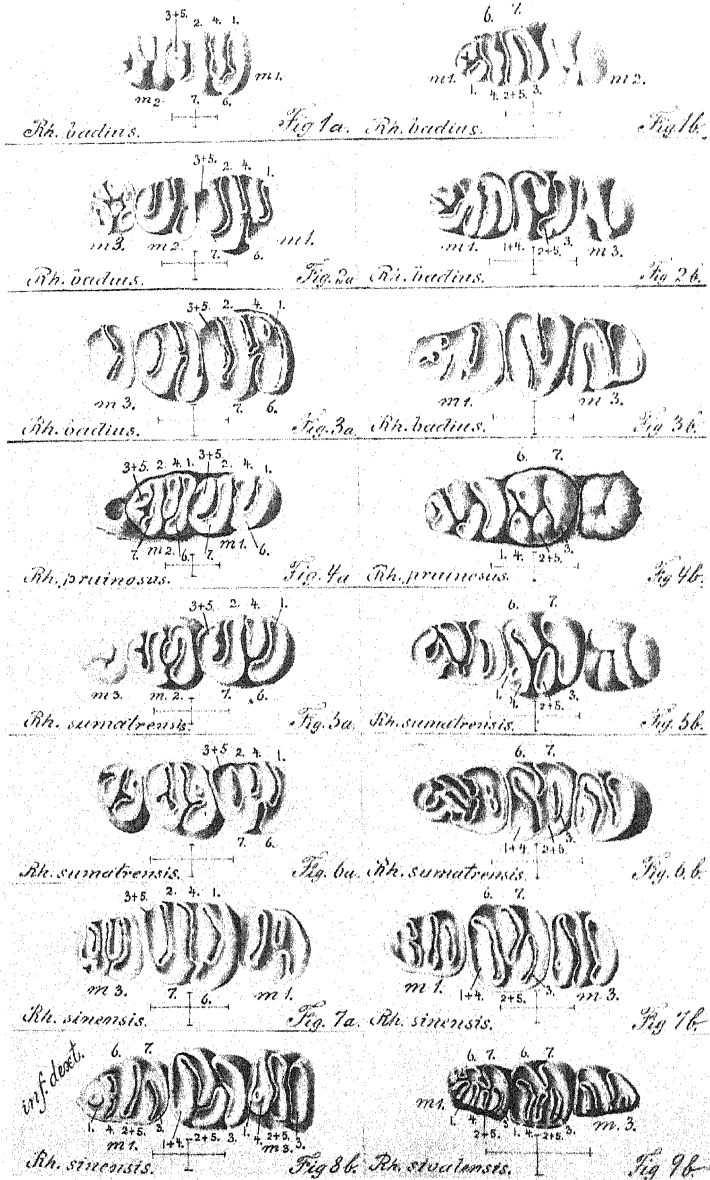 3+5. 2. 4. 1.
m 1.
m 2. 7. 6.
Rh. badius. Fig 1a.
6. 7.
m 1. m 2.
1. 4. 2+5. 3.
Rh. badius. Fig. 1b.
3+5. 2. 4. 1.
m 3. m 2. 7. 6. m 1.
Rh. badius. Fig. 2a
m 1. 1+4. 2+5. 3. m 3.
Rh. badius. Fig 2b.
3+5. 2. 4. 1.
m 3. 7. 6.
Rh. badius. Fig. 3a
m 1. m 3.
Rh. badius. Fig 3b.
3+5. 2. 4. 1. 3+5. 2. 4. 1.
7. m 2. 6. 7. m 1. 6.
Rh. pruinosus. Fig. 4a
6. 7.
1. 4. 2+5. 3.
Rh. pruinosus. Fig 4b.
3+5. 2. 4. 1.
m 3. m. 2. 7. 6.
Rh. sumatrensis. Fig. 5a.
6. 7.
1. 4. 2+5. 3.
Rh. sumatrensis. Fig. 5b.
3+5 2. 4. 1.
7. 6.
Rh. sumatrensis. Fig. 6a.
6. 7.
1+4. 2+5. 3.
Rh. sumatrensis. Fig. 6.b.
3+5. 2. 4. 1.
m 3. 7. 6. m 1.
Rh. sinensis. Fig. 7a.
6. 7.
m 1. 1+4. 2+5. 3. m 3.
Rh. sinensis. Fig 7b.
inf. dext.
6. 7.
1. 4. 2+5. 3. 1+4. 2+5. 3. 1. 4. 2+5. 3.
m 1. m 3.
Rh. sinensis. Fig 8b.
6. 7. 6. 7.
m 1. 1. 4. 2+5. 3. 1. 4. 2+5. 3. m 3.
Rh. sivalensis. Fig 9b.